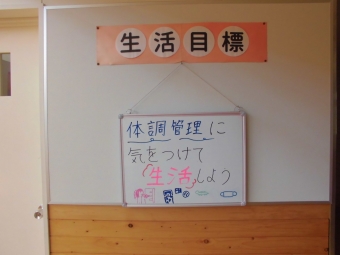 生活目標
体調管理に
気をつけて
「生活」しよう